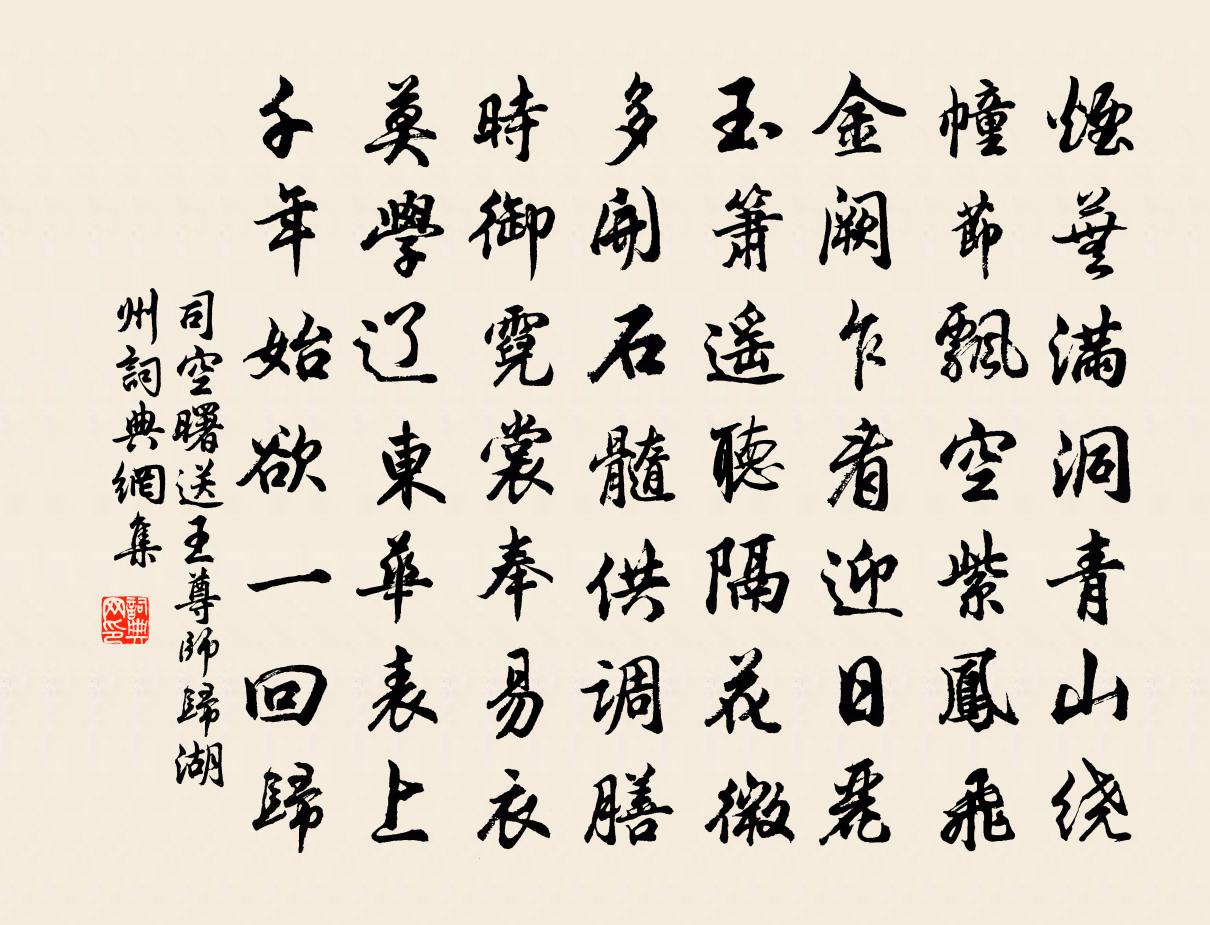 煙蕪滿洞青山绕
幢節飄空紫鳳飛
金闕乍看迎日麗
玉簫遥聽隔花微
多開石髓供调膳
時御霓裳奉易衣
莫學辽東華表上
千年始欲一回歸
司空曙送王尊師歸湖
州詞典網集
詞典
网印